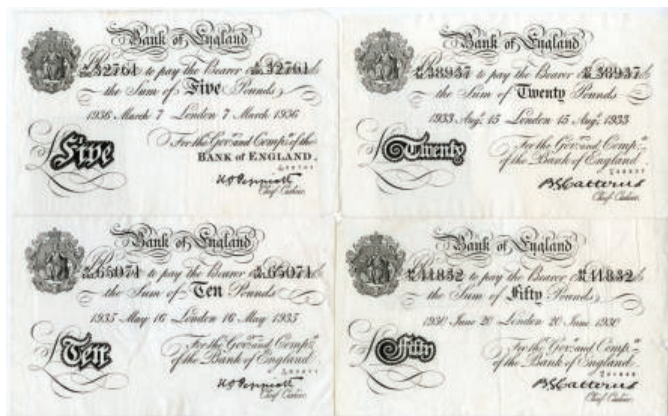 Bank of England
32761 to pay the Bearer 32761
the Sum of Five Pounds
1936 March 7 London 7 March 1936
For the Gov:r and Comp:a of the
BANK of ENGLAND.
£ Five
K O Peppiatt
Chief Cashier.
Bank of England
38937 to pay the Bearer 38937
the Sum of Twenty Pounds
1933 Aug. 15 London 15 Aug. 1933
For the Gov:r and Comp:a
of the Bank of England
£ Twenty
B G Catterns
Chief Cashier.
Bank of England
65071 to pay the Bearer 65071
the Sum of Ten Pounds
1935 May 16 London 16 May 1935
For the Gov:r and Comp:a
of the Bank of England
£ Ten
K O Peppiatt
Chief Cashier.
Bank of England
41832 to pay the Bearer 41832
the Sum of Fifty Pounds
1930 June 20 London 20 June 1930
For the Gov:r and Comp:a
of the Bank of England.
£ Fifty
B G Catterns
Chief Cashier.